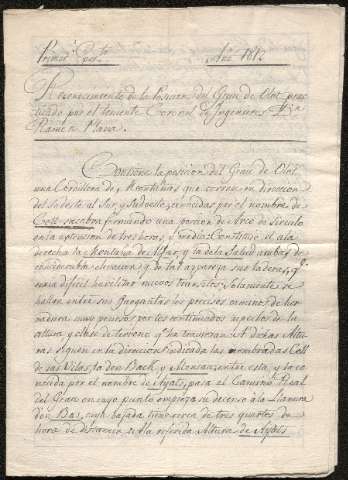 Año 1812
Reconocimiento de la Posicion del Grau de Olot prac
ticado por el teniente Coronel de Ingenieros Dn
Ramon Plana.
Contiene la posicion del Grau de Olot
una Cordillera de Montañas que corren en direccion
del Sudeste al Sur, y Sudoeste conocidas por el nombre de
Coll formando una porcion de Arco de Circulo
en la extension de tres horas, y media Constituye a la
derecha la Montaña de , y la de la Salud ambas de
considerable elevacion, y de tal aspereza sus laderas, q.e
seria dificil havilitar nuevos transitos, Solamente se
hallan entre sus Gargantas los precisos caminos de her
radura muy penosos por los continuados
altura y clase de terreno q.e las A dichas Altu
ras siguen en la direccion indicada las nombradas Coll
de sas Vilas, la don Bach, y esta y la co
nocida por el nombre de Ayats, pasa el Camino Real
del Grau en cuyo punto empieza su decenso a la Llanura
don Bas, cuya bajada tiene cerca de tres quartos de
hora de distancia a la referida Altura de Ayats